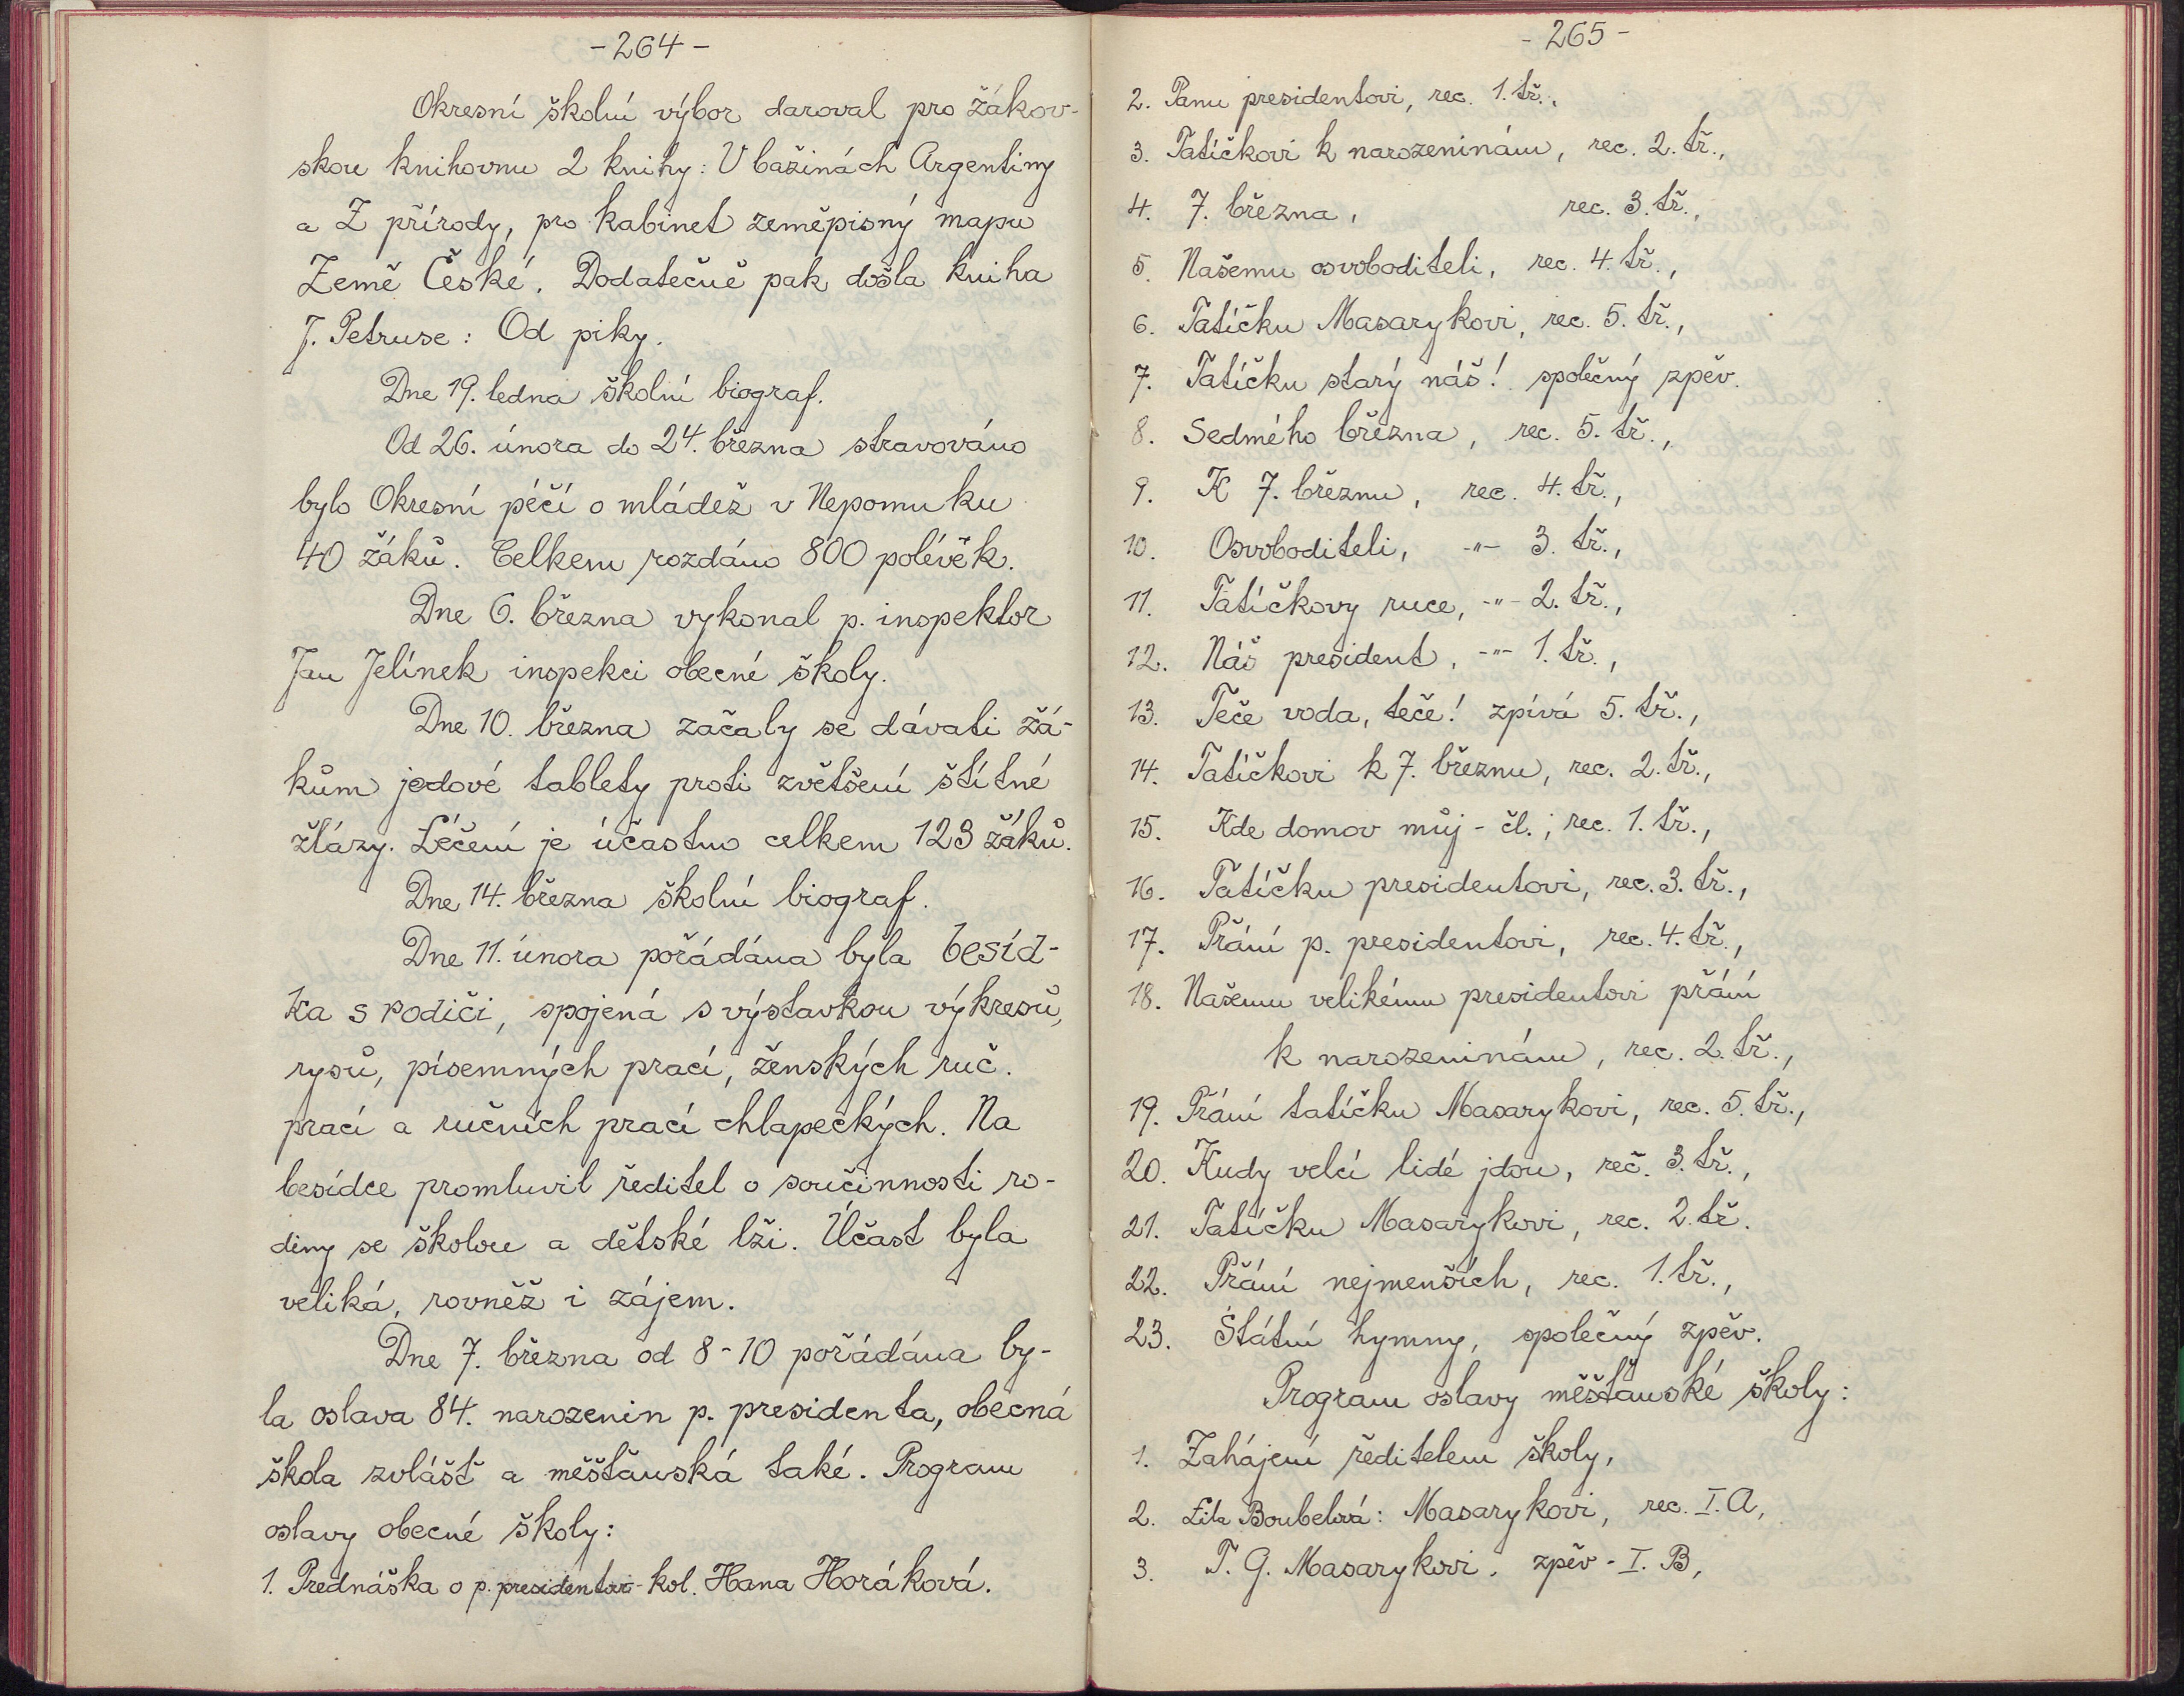 - 264 -
Okresní školní výbor daroval pro žákov-
skou knihovnu 2 knihy: V bažinách Argentiny
a Z přírody, pro kabinet zeměpisný mapu
Země České. Dodatečně pak došla kniha
J. Petruse: Od piky.
Dne 19. ledna školní biograf.
Od 26. února do 24. března stravováno
bylo Okresní péčí o mládež v Nepomuku
40 žáků. Celkem rozdáno 800 polévěk.
Dne 6. března vykonal p. inspektor
Jan Jelínek inspekci obecné školy.
Dne 10. března začaly se dávati žá-
kům jodové tablety proti zvětšení štítné
žlázy. Léčení je účastno celkem 123 žáků.
Dne 14. března školní biograf.
Dne 11. února pořádána byla besíd-
ka s rodiči, spojená s výstavkou výkresů,
rysů, písemných prací, ženských ruč.
prací a ručních prací chlapeckých. Na
besídce promluvil ředitel o součinnosti ro-
diny se školou a dětské lži. Účast byla
veliká, rovněž i zájem.
Dne 7. března od 8-10 pořádána by-
la oslava 84. narozenin p. presidenta, obecná
škola zvlášť a měšťanská také. Program
oslavy obecné školy:
1. Přednáška o p. presidentovi - kol. Hana Horáková.
- 265 -
2. Panu presidentovi, rec. 1. tř.,
3. Tatíčkovi k narozeninám, rec. 2. tř.,
4. 7. března, rec. 3. tř.,
5. Našemu osvoboditeli, rec. 4. tř.,
6. Tatíčku Masarykovi, rec. 5. tř.,
7. Tatíčku starý náš! společný zpěv.
8. Sedmého března, rec. 5. tř.,
9. K 7. březnu, rec. 4. tř.,
10. Osvoboditeli, -"- 3. tř.,
11. Tatíčkovy ruce, -"- 2. tř.,
12. Náš president, -"- 1. tř.,
13. Teče voda, teče! zpívá 5. tř.,
14. Tatíčkovi k 7. březnu, rec. 2. tř.,
15. Kde domov můj - čl.; rec. 1. tř.,
16. Tatíčku presidentovi, rec. 3. tř.,
17. Přání p. presidentovi, rec. 4. tř.,
18. Našemu velikému presidentovi přání
k narozeninám, rec. 2. tř.,
19. Přání tatíčku Masarykovi, rec. 5. tř.,
20. Kudy velcí lidé jdou, reč. 3. tř.,
21. Tatíčku Masarykovi, rec. 2. tř.
22. Přání nejmenších, rec. 1. tř.,
23. Státní hymny, společný zpěv.
Program oslavy měšťanské školy:
1. Zahájení ředitelem školy,
2. Lila Boubelová: Masarykovi, rec. I. A,
3. T. G. Masarykovi. zpěv - I. B,